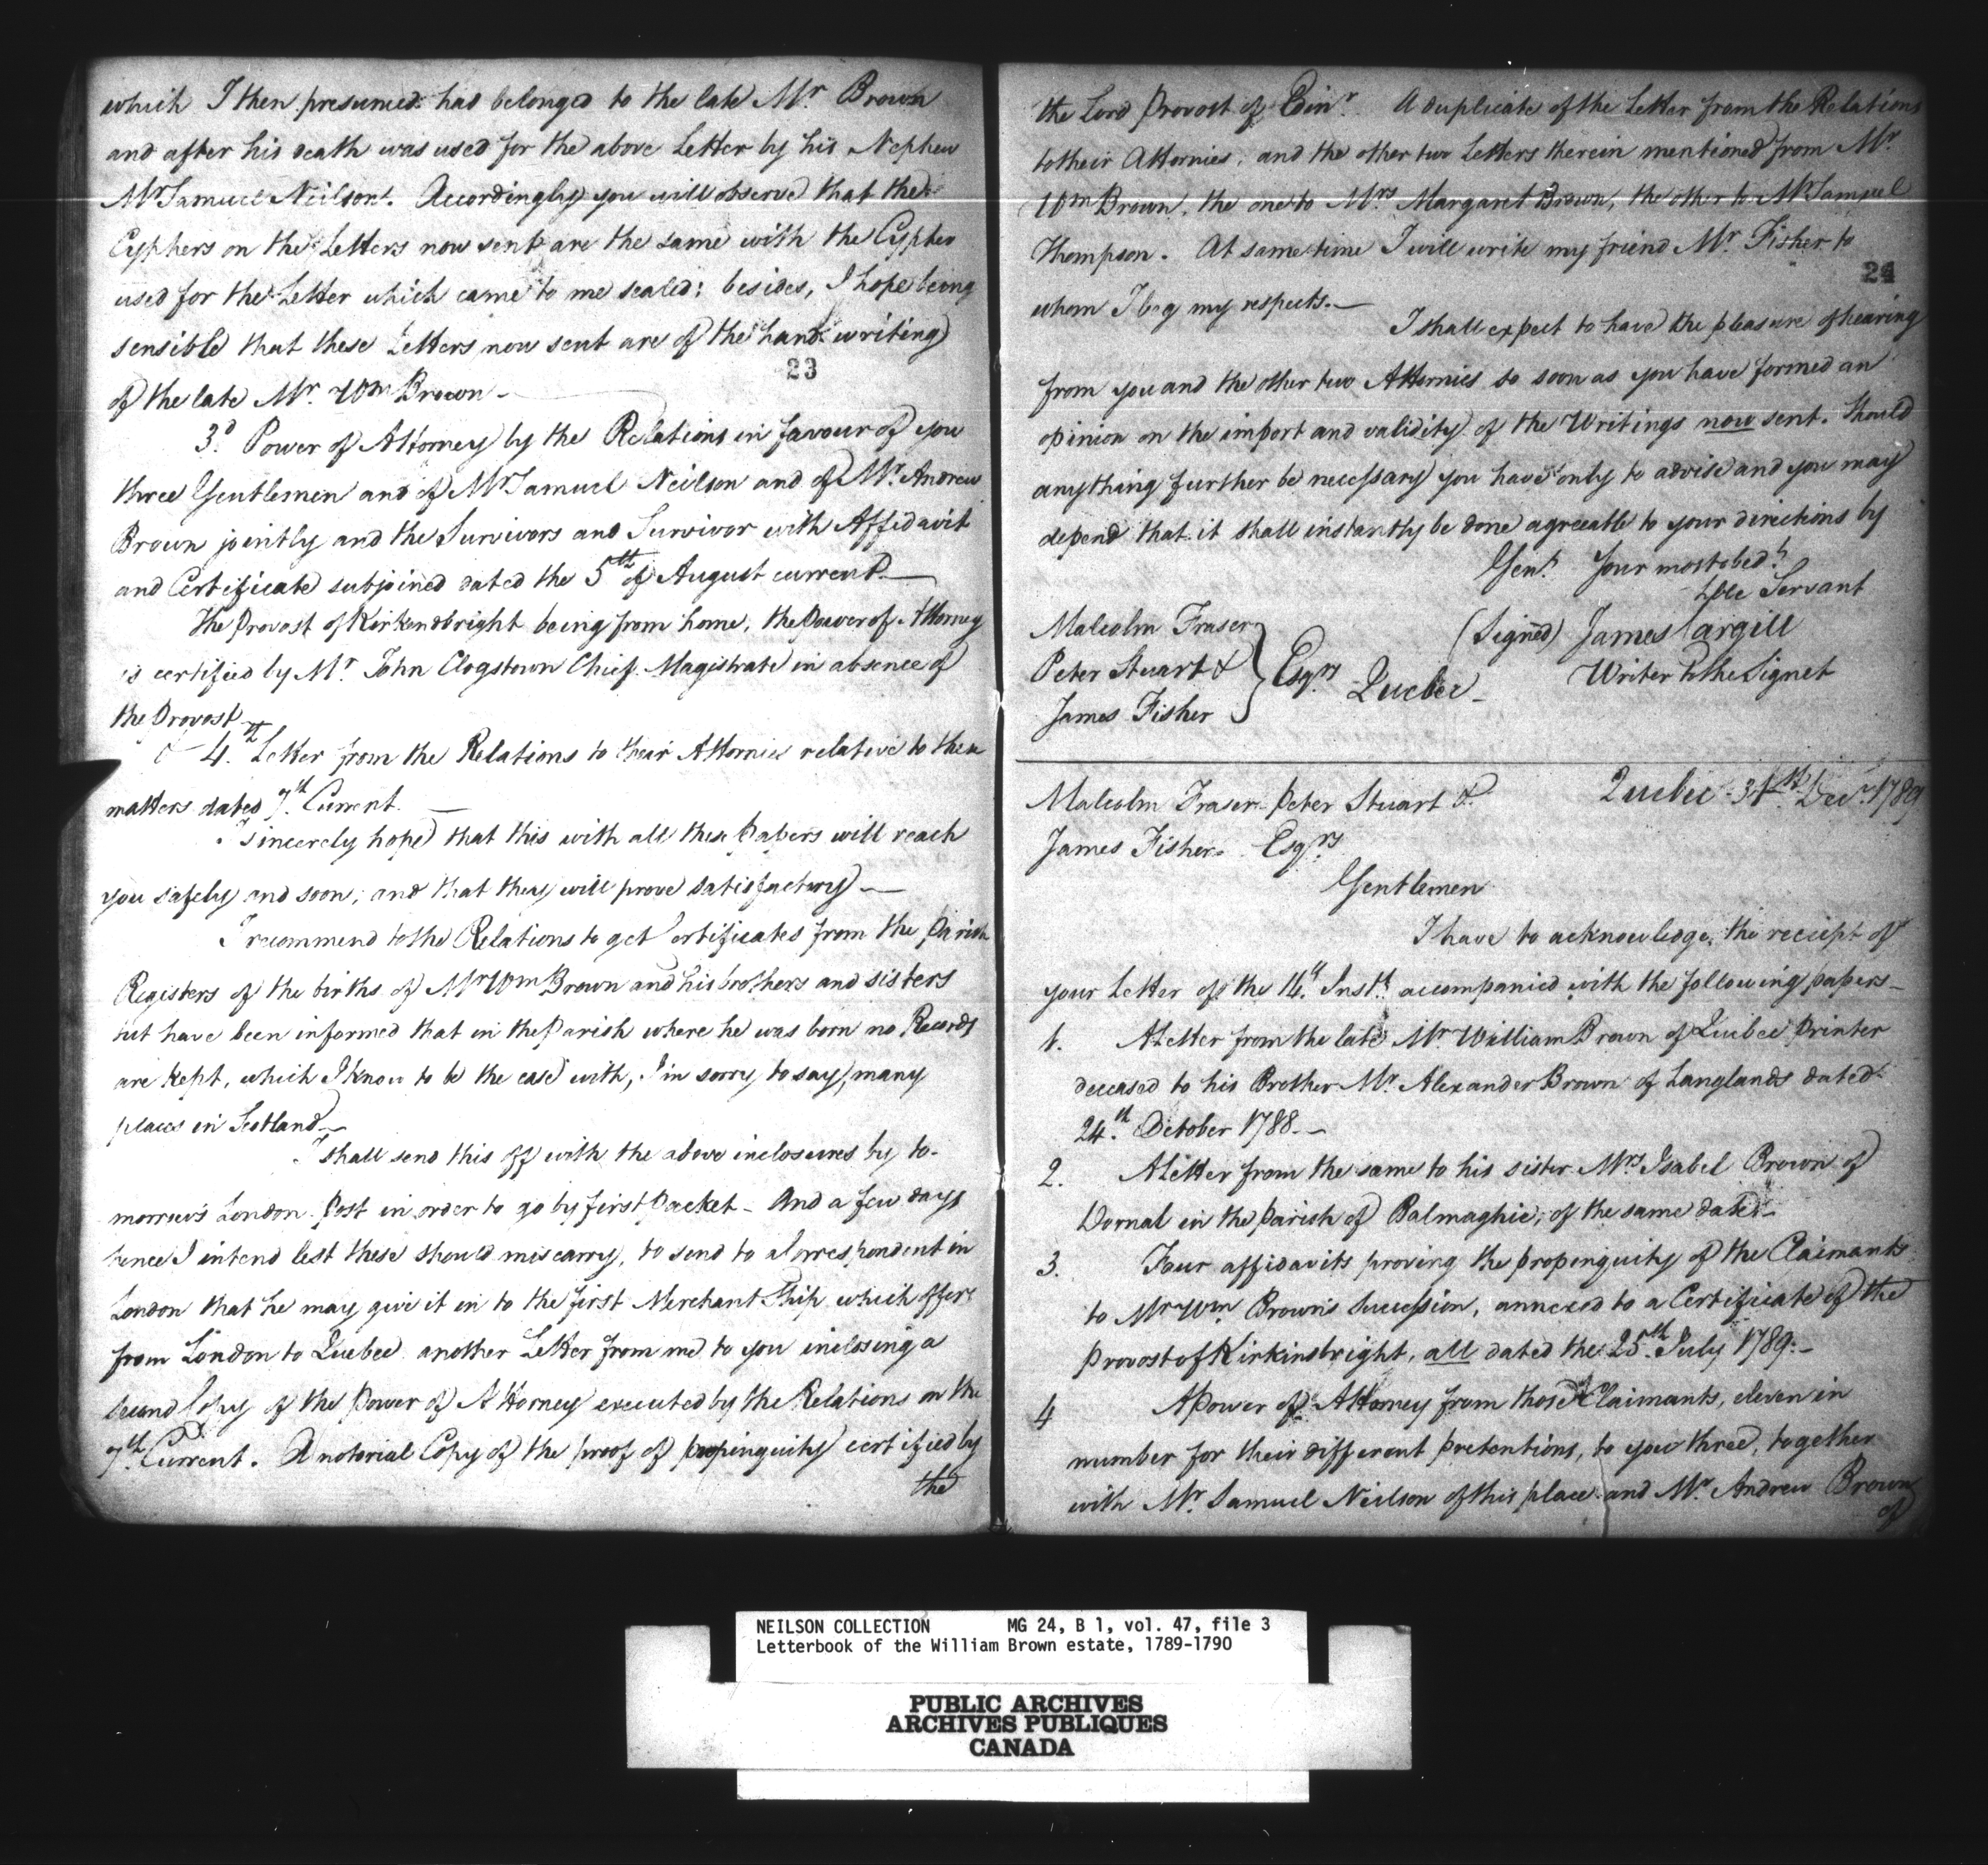 which I then presumed had belonged to the late Mr. Brown
and after his death was used for the above Letter by his Nephew
Mr Samuel Neilson. Accordingly you will observe that the
Cyphers on the Letters now sent are the same with the Cypher
used for the Letter which came to me sealed; besides, I hope being
sensible that these Letters now sent are of the hand writing
of the late Mr. Wm Brown -
23
3d. Power of Attorney by the Relations in favour of you
three Gentlemen and of Mr Samuel Neilson and of Mr. Andrew
Brown jointly and the Survivors and Survivor with Affidavit
and Certificate subjoined dated the 5th of August current. —
The Provost of Kirkcudbright being from home, the Power of Attorney
is certified by Mr John Clogstown Chief Magistrate in absence of
the Provost —
4th. Letter from the Relations to their Attornies relative to these
matters dated 7th. Current. —
I sincerely hope that this with all these Papers will reach
you safely and soon; and that they will prove satisfactory —
I recommend to the Relations to get Certificates from the Parish
Registers of the births of Mr Wm Brown and his brothers and sisters
but have been informed that in the Parish where he was born no Records
are kept, which I know to be the case with, I'm sorry to say, many
places in Scotland —
I shall send this off with the above inclosures by to-
morrow's London Post in order to go by first Packet - And a few days
hence I intend lest these should miscarry, to send to a Correspondent in
London that he may give it in to the first Merchant Ship which offers
from London to Quebec another Letter from me to you inclosing a
second Copy of the Power of Attorney executed by the Relations on the
7th. Current. A notorial Copy of the proof of propinquity certified by
the
the Lord Provost of Edinr. A duplicate of the Letter from the Relations
to their Attornies, and the other two Letters therein mentioned from Mr.
Wm Brown, the one to Mrs Margaret Brown, the other to Mr Samuel
Thompson. At same time I will write my friend Mr. Fisher to
24
whom I beg my respects. —
I shall expect to have the pleasure of hearing
from you and the other two Attornies so soon as you have formed an
opinion on the import and validity of the Writings now sent. Should
anything further be necessary you have only to advise and you may
depend that it shall instantly be done agreeable to your directions by
Gent. Your most obedt.
hble Servant
(Signed) James Cargill
Writer to the Signet
Malcolm Fraser
Peter Stuart &
James Fisher
Esqrs Quebec -
Quebec 31st. Decr. 1789
Malcolm Fraser Peter Stuart &
James Fisher Esqrs
Gentlemen
I have to acknowledge the reciept of
your Letter of the 14th Inst. accompanied with the following papers -
1. A Letter from the late Mr. William Brown of Quebec Printer
deceased to his Brother Mr. Alexander Brown of Langlands dated
24th. October 1788. -
2. A Letter from the same to his sister Mrs Isabel Brown of
Dornal in the Parish of Balmaghie, of the same date -
3. Four affidavits proving the propinquity of the Claimants
to Mr Wm. Brown's Succession, annexed to a Certificate of the
Provost of Kirkinbright, all dated the 25th July 1789. -
4 A Power of Attorney from those Claimants, eleven in
number for their different pretentions, to you three, together
with Mr. Samuel Neilson of this place and Mr. Andrew Brown
of
NEILSON COLLECTION MG 24, B 1, vol. 47, file 3
Letterbook of the William Brown estate, 1789-1790
PUBLIC ARCHIVES
ARCHIVES PUBLIQUES
CANADA